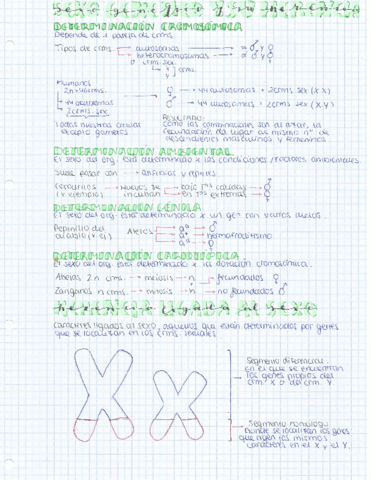 Sexo genético y su herencia
DETERMINACIÓN CROMOSÓMICA
Depende de 1 pareja de crms.
Tipos de crms. → autosomas → = ♂ y ♀
→ heterocromosomas → ≠ ♂ y ♀
o crms. sex.
X Y crms.
Humanos
2n = 46 crms. ♀ → 44 autosomas + 2 crms sex (XX)
→ 44 autosomas
→ 2 crms. sex ♂ → 44 autosomas + 2 crms sex (XY)
RESULTADO:
Todas nuestras células
excepto gametos
Como las combinaciones son al azar, la
fecundación da lugar al mismo nº de
descendientes masculinos y femeninos.
DETERMINACIÓN AMBIENTAL
El sexo del org. está determinado x las condiciones/factores ambientales.
Suele pasar con → anfibios y reptiles
Cocodrilos → Huevos se → bajo Tªs cálidas → ♂
(x ejemplo) incuban → en Tªs extremas → ♀
DETERMINACIÓN GÉNICA
El sexo del org. está determinado x un gen con varios alelos
Pepinillo del → Alelos → → ♂
(x ej.) → → hermafroditismo
→ → ♀
DETERMINACIÓN CARIOTÍPICA
El sexo del org. está determinado x la dotación cromosómica.
Abejas 2n crms. → meiosis → n → fecundados ♀
Zánganos n crms. → mitosis → n → no fecundados ♂
herencia ligada al sexo
Caracteres ligados al sexo, aquellos que están determinados por genes
que se localizan en los crms. sexuales
Segmento diferencial
en el que se encuentran
los genes propios del
crm. X o del crm. Y
Segmento homólogo
donde se localizan los genes
que rigen los mismos
caracteres en el X y el Y.